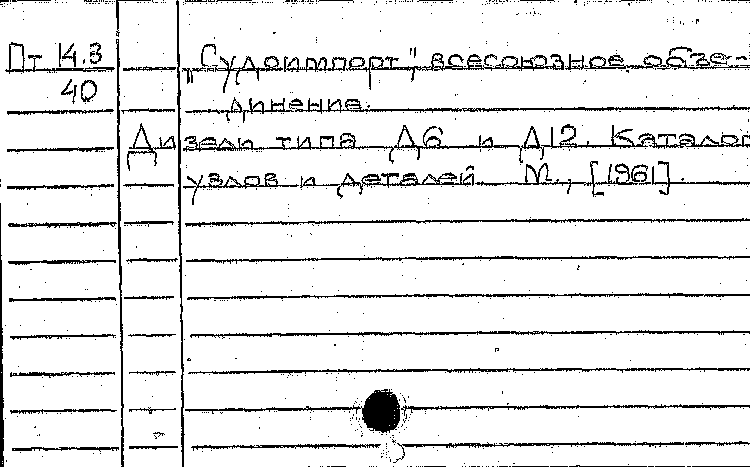 Пт 14.3
40
„Судоимпорт", всесоюзное объе-
динение.
Дизели типа Д6 и Д12. Каталог
узлов и деталей. М., [1961].